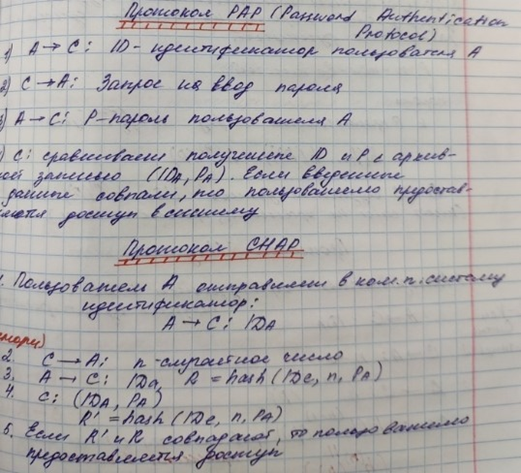 Протокол PAP (Password Authentication
Protocol)
1) A → C: ID - идентификатор пользователя A
2) C → A: Запрос на ввод пароля
3) A → C: P - пароль пользователя A
) C: сравнивает полученные ID и P с архив-
ной записью (IDA, PA). Если введенные
данные совпали, то пользователю предостав-
ляется доступ в систему
Протокол CHAP
1. Пользователь A отправляет в ком.п. систему
идентификатор:
A → C: IDA
2. C → A: n - случайное число
3. A → C: IDA, R = hash (IDC, n, PA)
4. C: (IDA, PA)
R' = hash (IDC, n, PA)
5. Если R' и R совпадают, то пользователю
предоставляется доступ